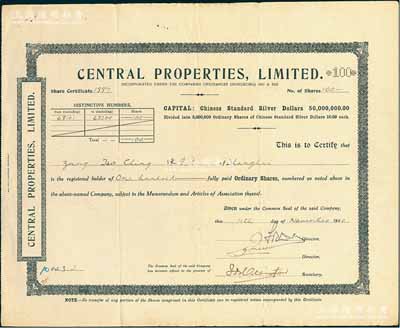 CENTRAL PROPERTIES, LIMITED.
100
INCORPORATED UNDER THE COMPANIES ORDINANCES (HONGKONG)
Share Certificate
No. of Shares 100
CENTRAL PROPERTIES, LIMITED.
DISTINCTIVE NUMBERS.
CAPITAL: Chinese Standard Silver Dollars 50,000,000.00
Divided into 5,000,000 Ordinary Shares of Chinese Standard Silver Dollars 10.00 each
Total
This is to Certify that
Shanghai
is the registered holder of One hundred fully paid Ordinary Shares, numbered as noted above in
the above-named Company, subject to the Memorandum and Articles of Association thereof.
GIVEN under the Common Seal of the said Company,
this day of November
Director.
Director.
The Common Seal of the said Company
has been affixed in the presence of
Secretary.
NOTE.—No transfer of any portion of the Shares comprised in this Certificate can be registered unless accompanied by this Certificate